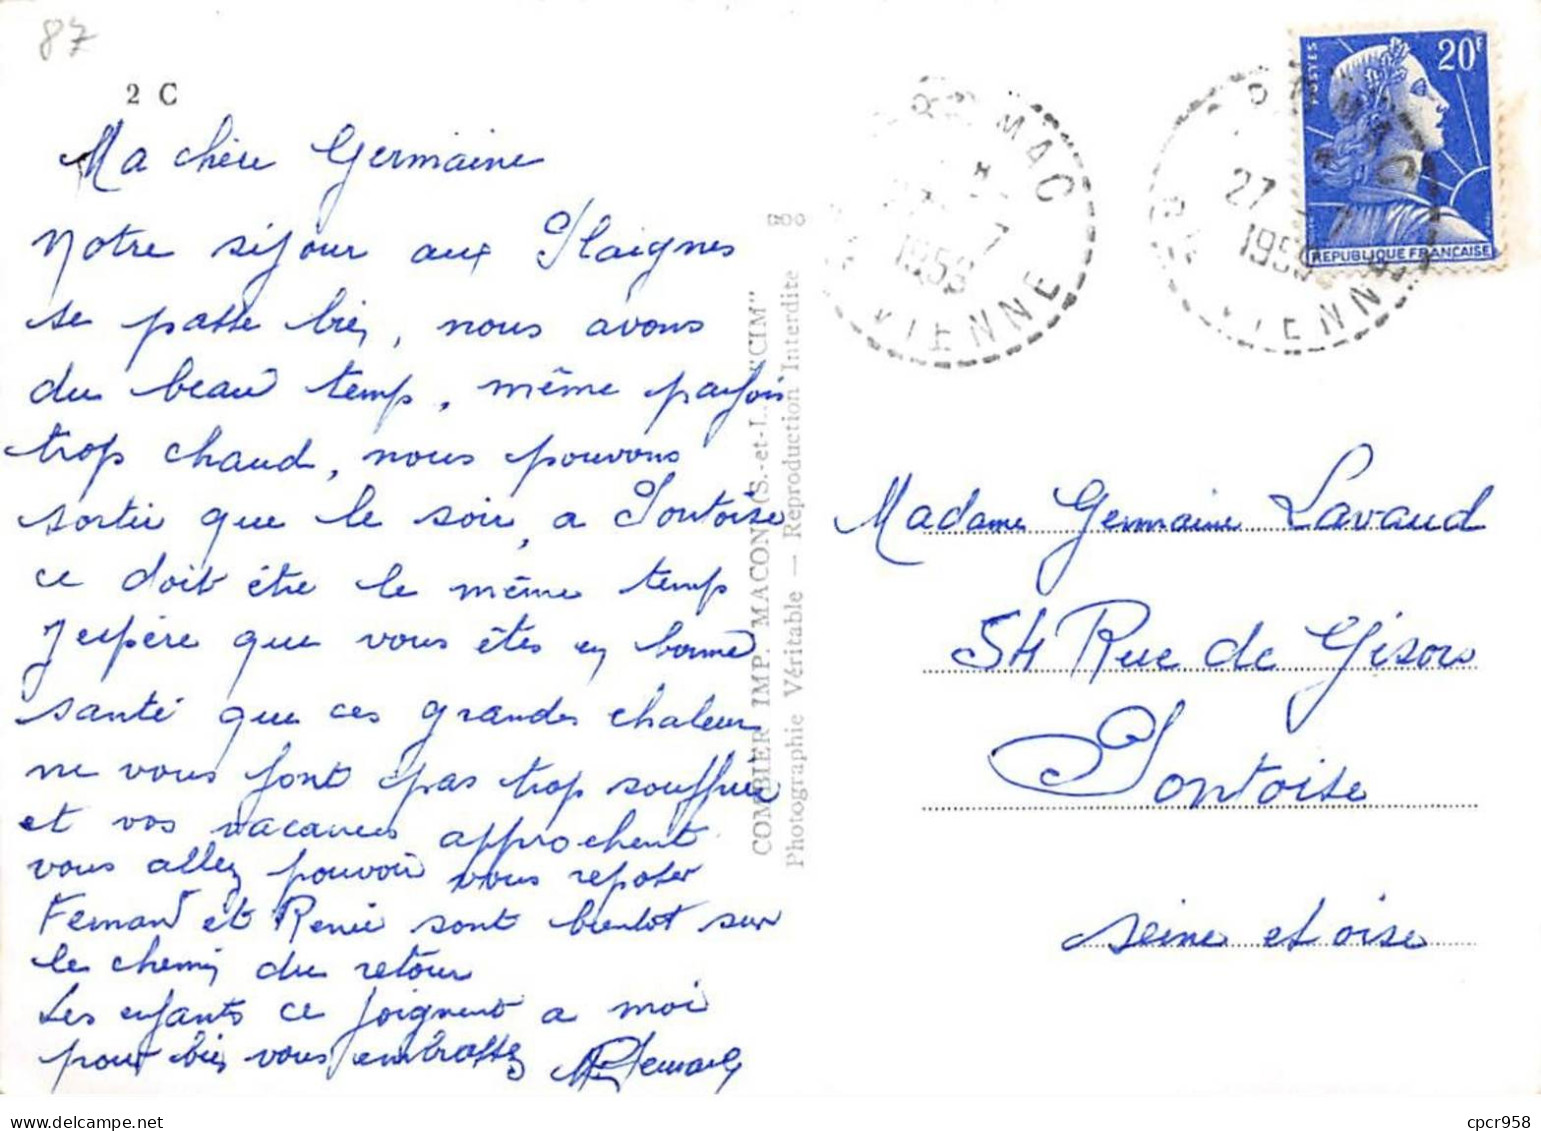 87
2 C
Ma chère Germaine
Notre séjour aux Plaignes
se passe bien, nous avons
du beau temps, même parfois
trop chaud, nous pouvons
sortir que le soir, a Pontoise
ce doit être le même temps
J'espère que vous êtes en bonne
santé que ces grandes chaleurs
ne vous font pas trop souffrir
et vos vacances approchent
vous allez pouvoir vous reposer
Fernand et Renée sont bientot sur
le chemin du retour
Les enfants ce joignent a moi
pour bien vous embrasser
COMBIER IMP. MACON (S.-et-L.) "CIM"
Photographie Véritable — Reproduction Interdite
MAC
7
1959
VIENNE
27 7
1959
VIENNE
POSTES
20F
REPUBLIQUE FRANÇAISE
Madame Germaine Lavaud
54 Rue de Gisors
Pontoise
Seine et oise
cpcr958